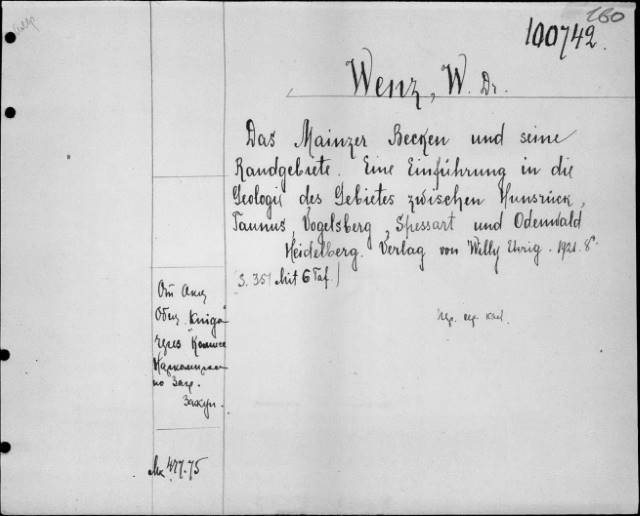 160
100742.
Wenz, W. Dr.
Das Mainzer Becken und seine
Randgebiete. Eine Einführung in die
Geologie des Gebietes zwischen Hunsrück,
Taunus, Vogelsberg, Spessart und Odenwald
Heidelberg. Verlag von Willy Ehrig. 1921. 8°.
(S. 351 Mit 6 Taf.)
От Акц
Общ. "Книга"
через
по Загр.
Закуп.
Мк 477.75